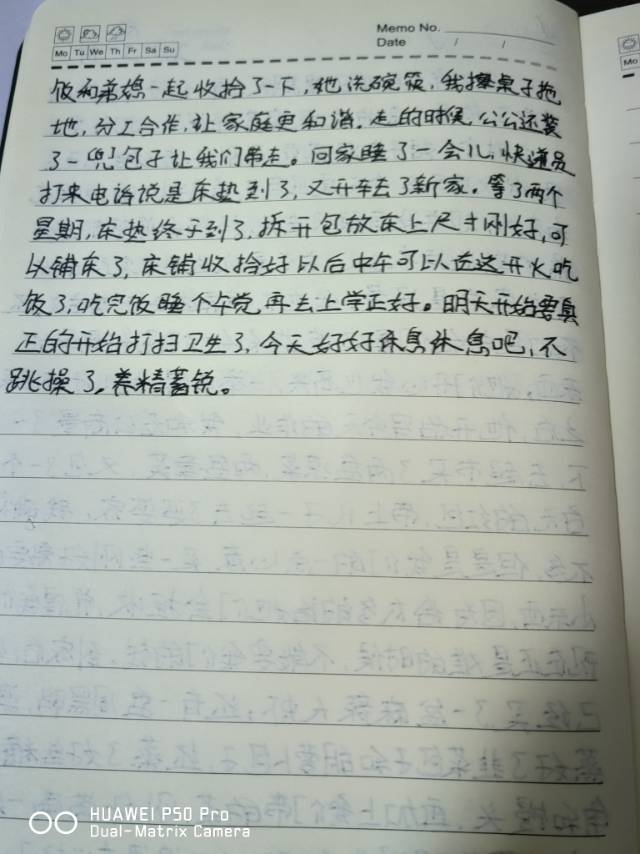 Memo No.
Date / /
Mo Tu We Th Fr Sa Su
Mo
饭和弟媳一起收拾了一下,她洗碗筷,我擦桌子拖
地,分工合作,让家庭更和谐。走的时候公公还装
了一兜包子让我们带走。回家睡了一会儿,快递员
打来电话说是床垫到了,又开车去了新家。等了两个
星期,床垫终于到了,拆开包放床上尺寸刚好,可
以铺床了,床铺收拾好以后中午可以在这开火吃
饭了,吃完饭睡个午觉再去上学正好。明天开始要真
正的开始打扫卫生了,今天好好休息休息吧,不
跳操了,养精蓄锐。
HUAWEI P50 Pro
Dual-Matrix Camera